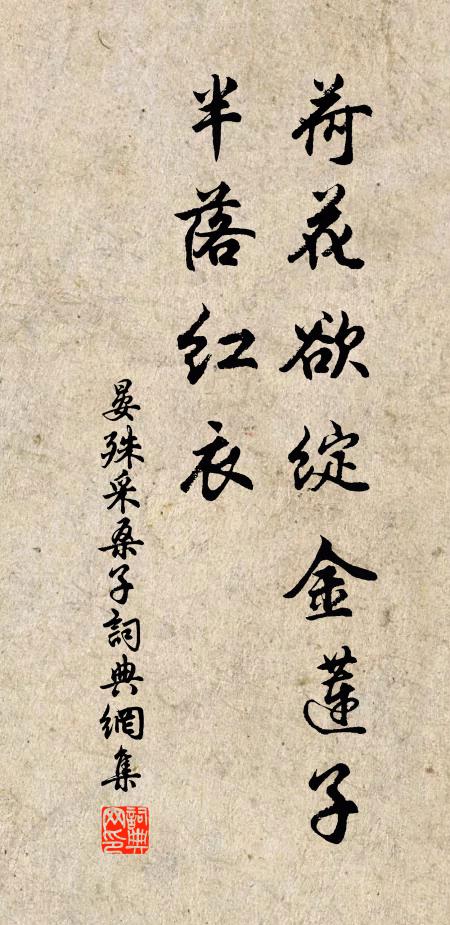 荷花欲綻金蓮子
半落紅衣
晏殊采桑子詞典網集
詞典网印